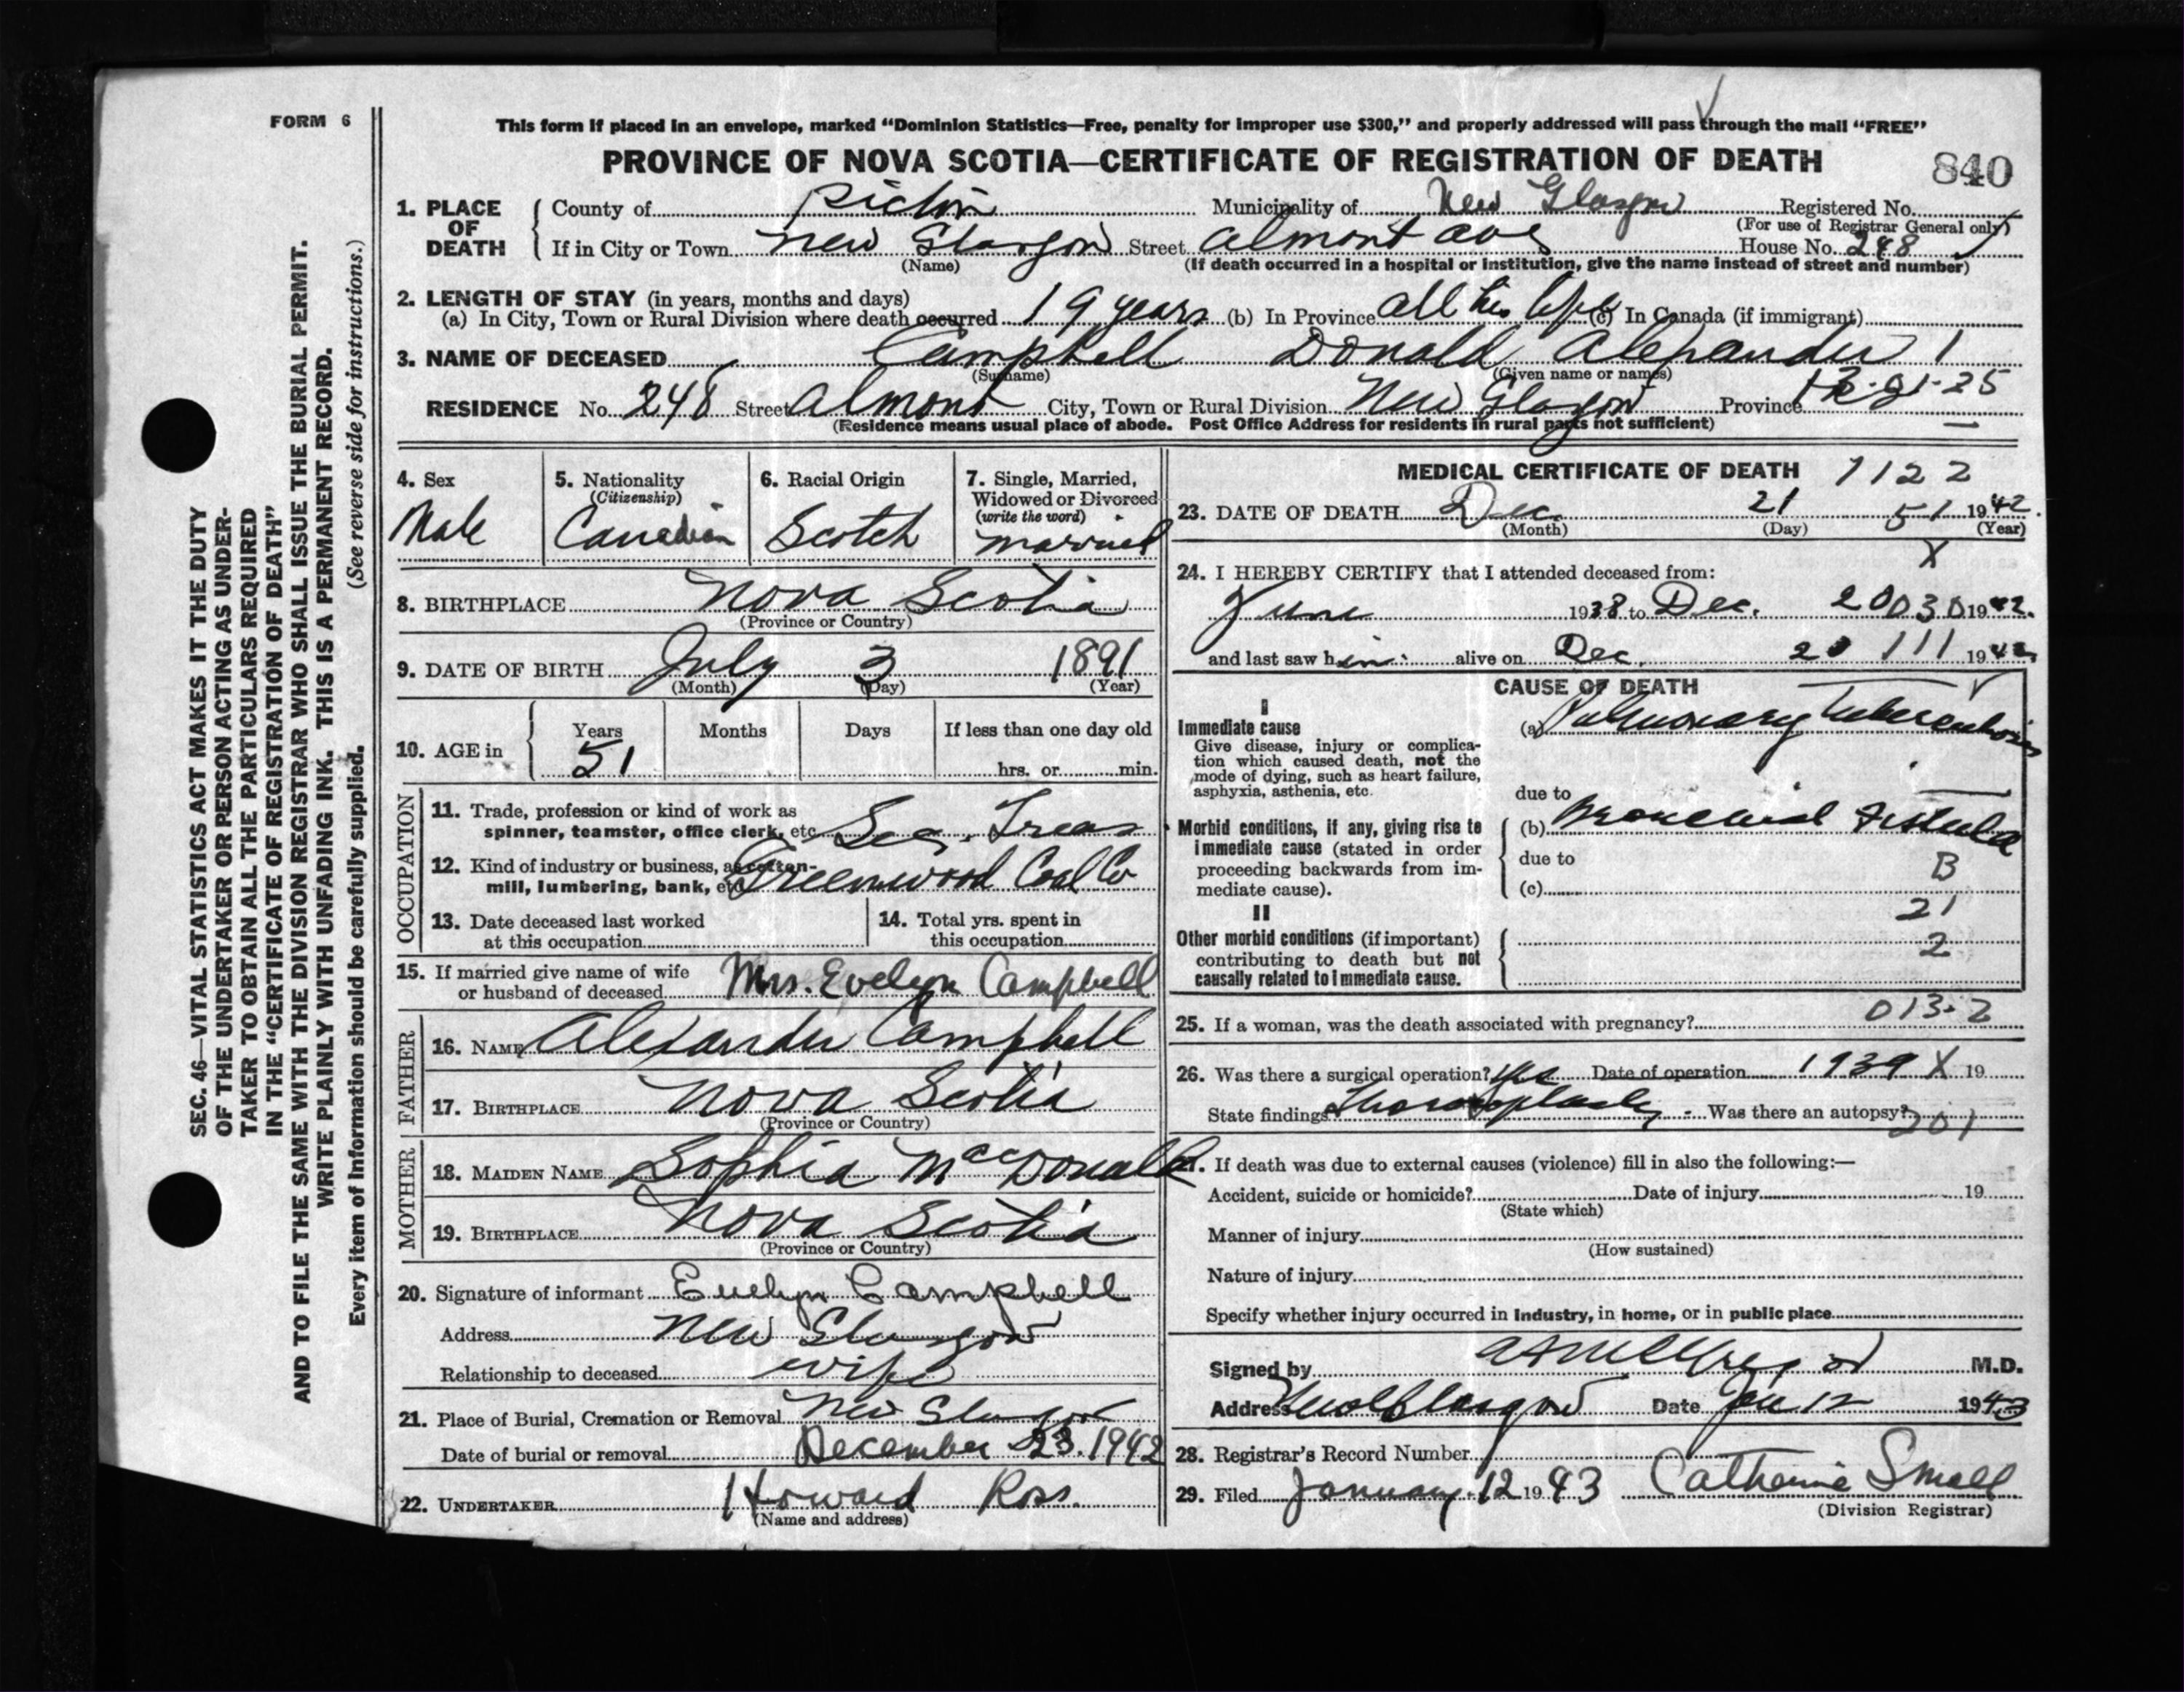 FORM 6
This form if placed in an envelope, marked “Dominion Statistics—Free, penalty for improper use $300,” and properly addressed will pass through the mail “FREE”
PROVINCE OF NOVA SCOTIA—CERTIFICATE OF REGISTRATION OF DEATH
840
1. PLACE OF DEATH County of Pictou Municipality of New Glasgow Registered No.
(For use of Registrar General only)
If in City or Town New Glasgow Street Almont Ave House No. 248
(Name) (If death occurred in a hospital or institution, give the name instead of street and number)
2. LENGTH OF STAY (in years, months and days)
(a) In City, Town or Rural Division where death occurred 19 years (b) In Province all his life (c) In Canada (if immigrant)
3. NAME OF DECEASED Campbell Donald Alexander 1
(Surname) (Given name or names)
RESIDENCE No. 248 Street Almont City, Town or Rural Division New Glasgow Province
(Residence means usual place of abode. Post Office Address for residents in rural parts not sufficient)
4. Sex
Male
5. Nationality
(Citizenship)
Canadian
6. Racial Origin
Scotch
7. Single, Married,
Widowed or Divorced
(write the word)
married
8. BIRTHPLACE Nova Scotia
(Province or Country)
9. DATE OF BIRTH July 3 1891
(Month) (Day) (Year)
10. AGE in Years Months Days If less than one day old
51 hrs. or min.
OCCUPATION
11. Trade, profession or kind of work as
spinner, teamster, office clerk, etc. Sec. Treas
12. Kind of industry or business, as cotton-
mill, lumbering, bank, etc. Greenwood Coal Co
13. Date deceased last worked
at this occupation
14. Total yrs. spent in
this occupation
15. If married give name of wife
or husband of deceased Mrs. Evelyn Campbell
FATHER
16. NAME Alexander Campbell
17. BIRTHPLACE Nova Scotia
(Province or Country)
MOTHER
18. MAIDEN NAME Sophia MacDonald
19. BIRTHPLACE Nova Scotia
(Province or Country)
20. Signature of informant Evelyn Campbell
Address New Glasgow
Relationship to deceased wife
21. Place of Burial, Cremation or Removal New Glasgow
Date of burial or removal December 23. 1942
22. UNDERTAKER Howard Ross.
(Name and address)
MEDICAL CERTIFICATE OF DEATH 1122
23. DATE OF DEATH Dec. 21 51 1942.
(Month) (Day) (Year)
X
24. I HEREBY CERTIFY that I attended deceased from:
June 1938 to Dec. 20 030 1942.
and last saw him alive on Dec. 20 111 1942
CAUSE OF DEATH
I
Immediate cause
Give disease, injury or complica-
tion which caused death, not the
mode of dying, such as heart failure,
asphyxia, asthenia, etc.
(a) Pulmonary Tuberculosis
due to
Morbid conditions, if any, giving rise to
immediate cause (stated in order
proceeding backwards from im-
mediate cause).
(b) Bronchial Fistula
due to
B
(c)
21
II
Other morbid conditions (if important)
contributing to death but not
causally related to immediate cause.
2
013-2
25. If a woman, was the death associated with pregnancy?
26. Was there a surgical operation? Yes Date of operation 1939 X 19
State findings Thoracoplasty. Was there an autopsy? 201
27. If death was due to external causes (violence) fill in also the following:—
Accident, suicide or homicide? Date of injury 19
(State which)
Manner of injury
(How sustained)
Nature of injury
Specify whether injury occurred in industry, in home, or in public place
Signed by M.D.
Address New Glasgow Date Jan 12 1943
28. Registrar's Record Number
29. Filed January 12 1943 Catherine Small
(Division Registrar)
SEC. 46—VITAL STATISTICS ACT MAKES IT THE DUTY
OF THE UNDERTAKER OR PERSON ACTING AS UNDER-
TAKER TO OBTAIN ALL THE PARTICULARS REQUIRED
IN THE “CERTIFICATE OF REGISTRATION OF DEATH”
AND TO FILE THE SAME WITH THE DIVISION REGISTRAR WHO SHALL ISSUE THE BURIAL PERMIT.
WRITE PLAINLY WITH UNFADING INK. THIS IS A PERMANENT RECORD.
Every item of information should be carefully supplied. (See reverse side for instructions.)